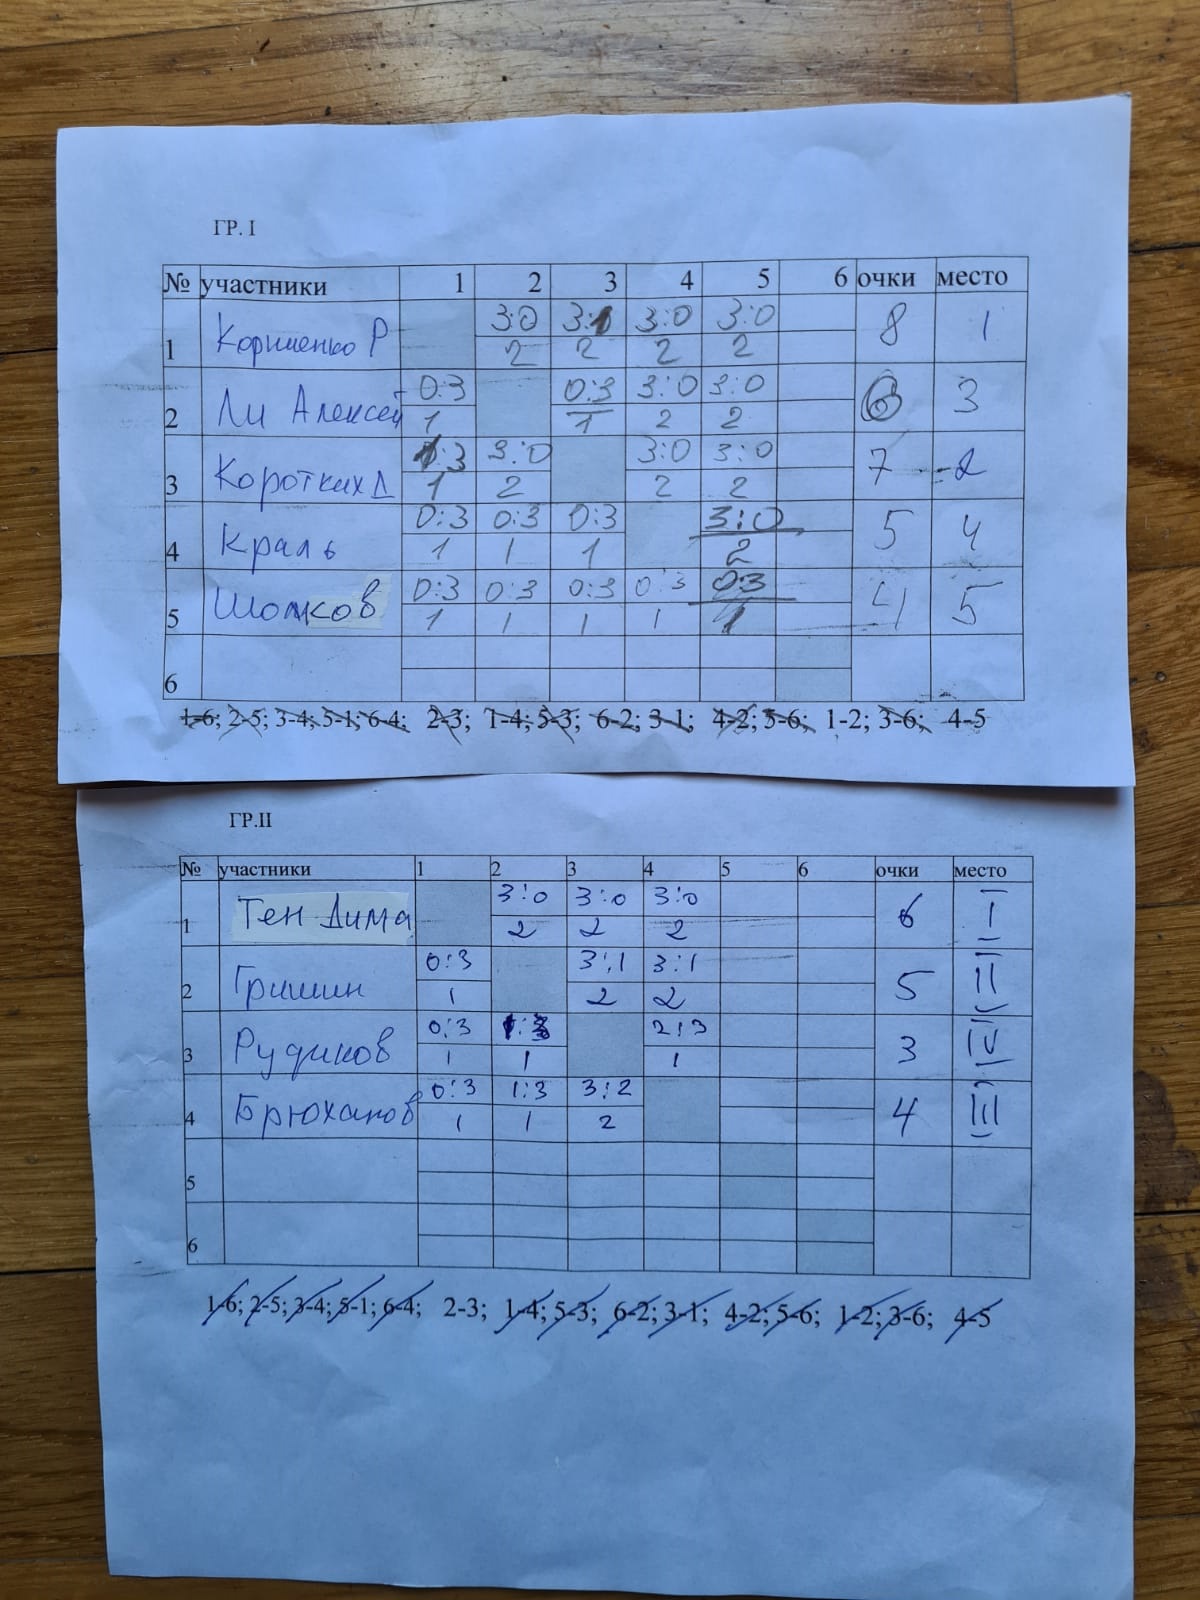 ГР. I
№ участники 1 2 3 4 5 6 очки место
1 Корниенко Р 3:0 3:1 3:0 3:0 8 1
2 2 2 2
2 Ли Алексей 0:3 0:3 3:0 3:0 6 3
1 1 2 2
3 Коротких Д 1:3 3:0 3:0 3:0 7 2
1 2 2 2
4 Краль 0:3 0:3 0:3 3:0 5 4
1 1 1 2
5 0:3 0:3 0:3 0:3 0:3 4 5
1 1 1 1 1
6
1-6; 2-5; 3-4; 5-1; 6-4; 2-3; 1-4; 5-3; 6-2; 3-1; 4-2; 5-6; 1-2; 3-6; 4-5
ГР.II
№ участники 1 2 3 4 5 6 очки место
1 Тен Дима 3:0 3:0 3:0 6 I
2 2 2
2 Гришин 0:3 3:1 3:1 5 II
1 2 2
3 Рудиков 0:3 1:3 2:3 3 IV
1 1 1
4 Брюханов 0:3 1:3 3:2 4 III
1 1 2
5
6
1-6; 2-5; 3-4; 5-1; 6-4; 2-3; 1-4; 5-3; 6-2; 3-1; 4-2; 5-6; 1-2; 3-6; 4-5